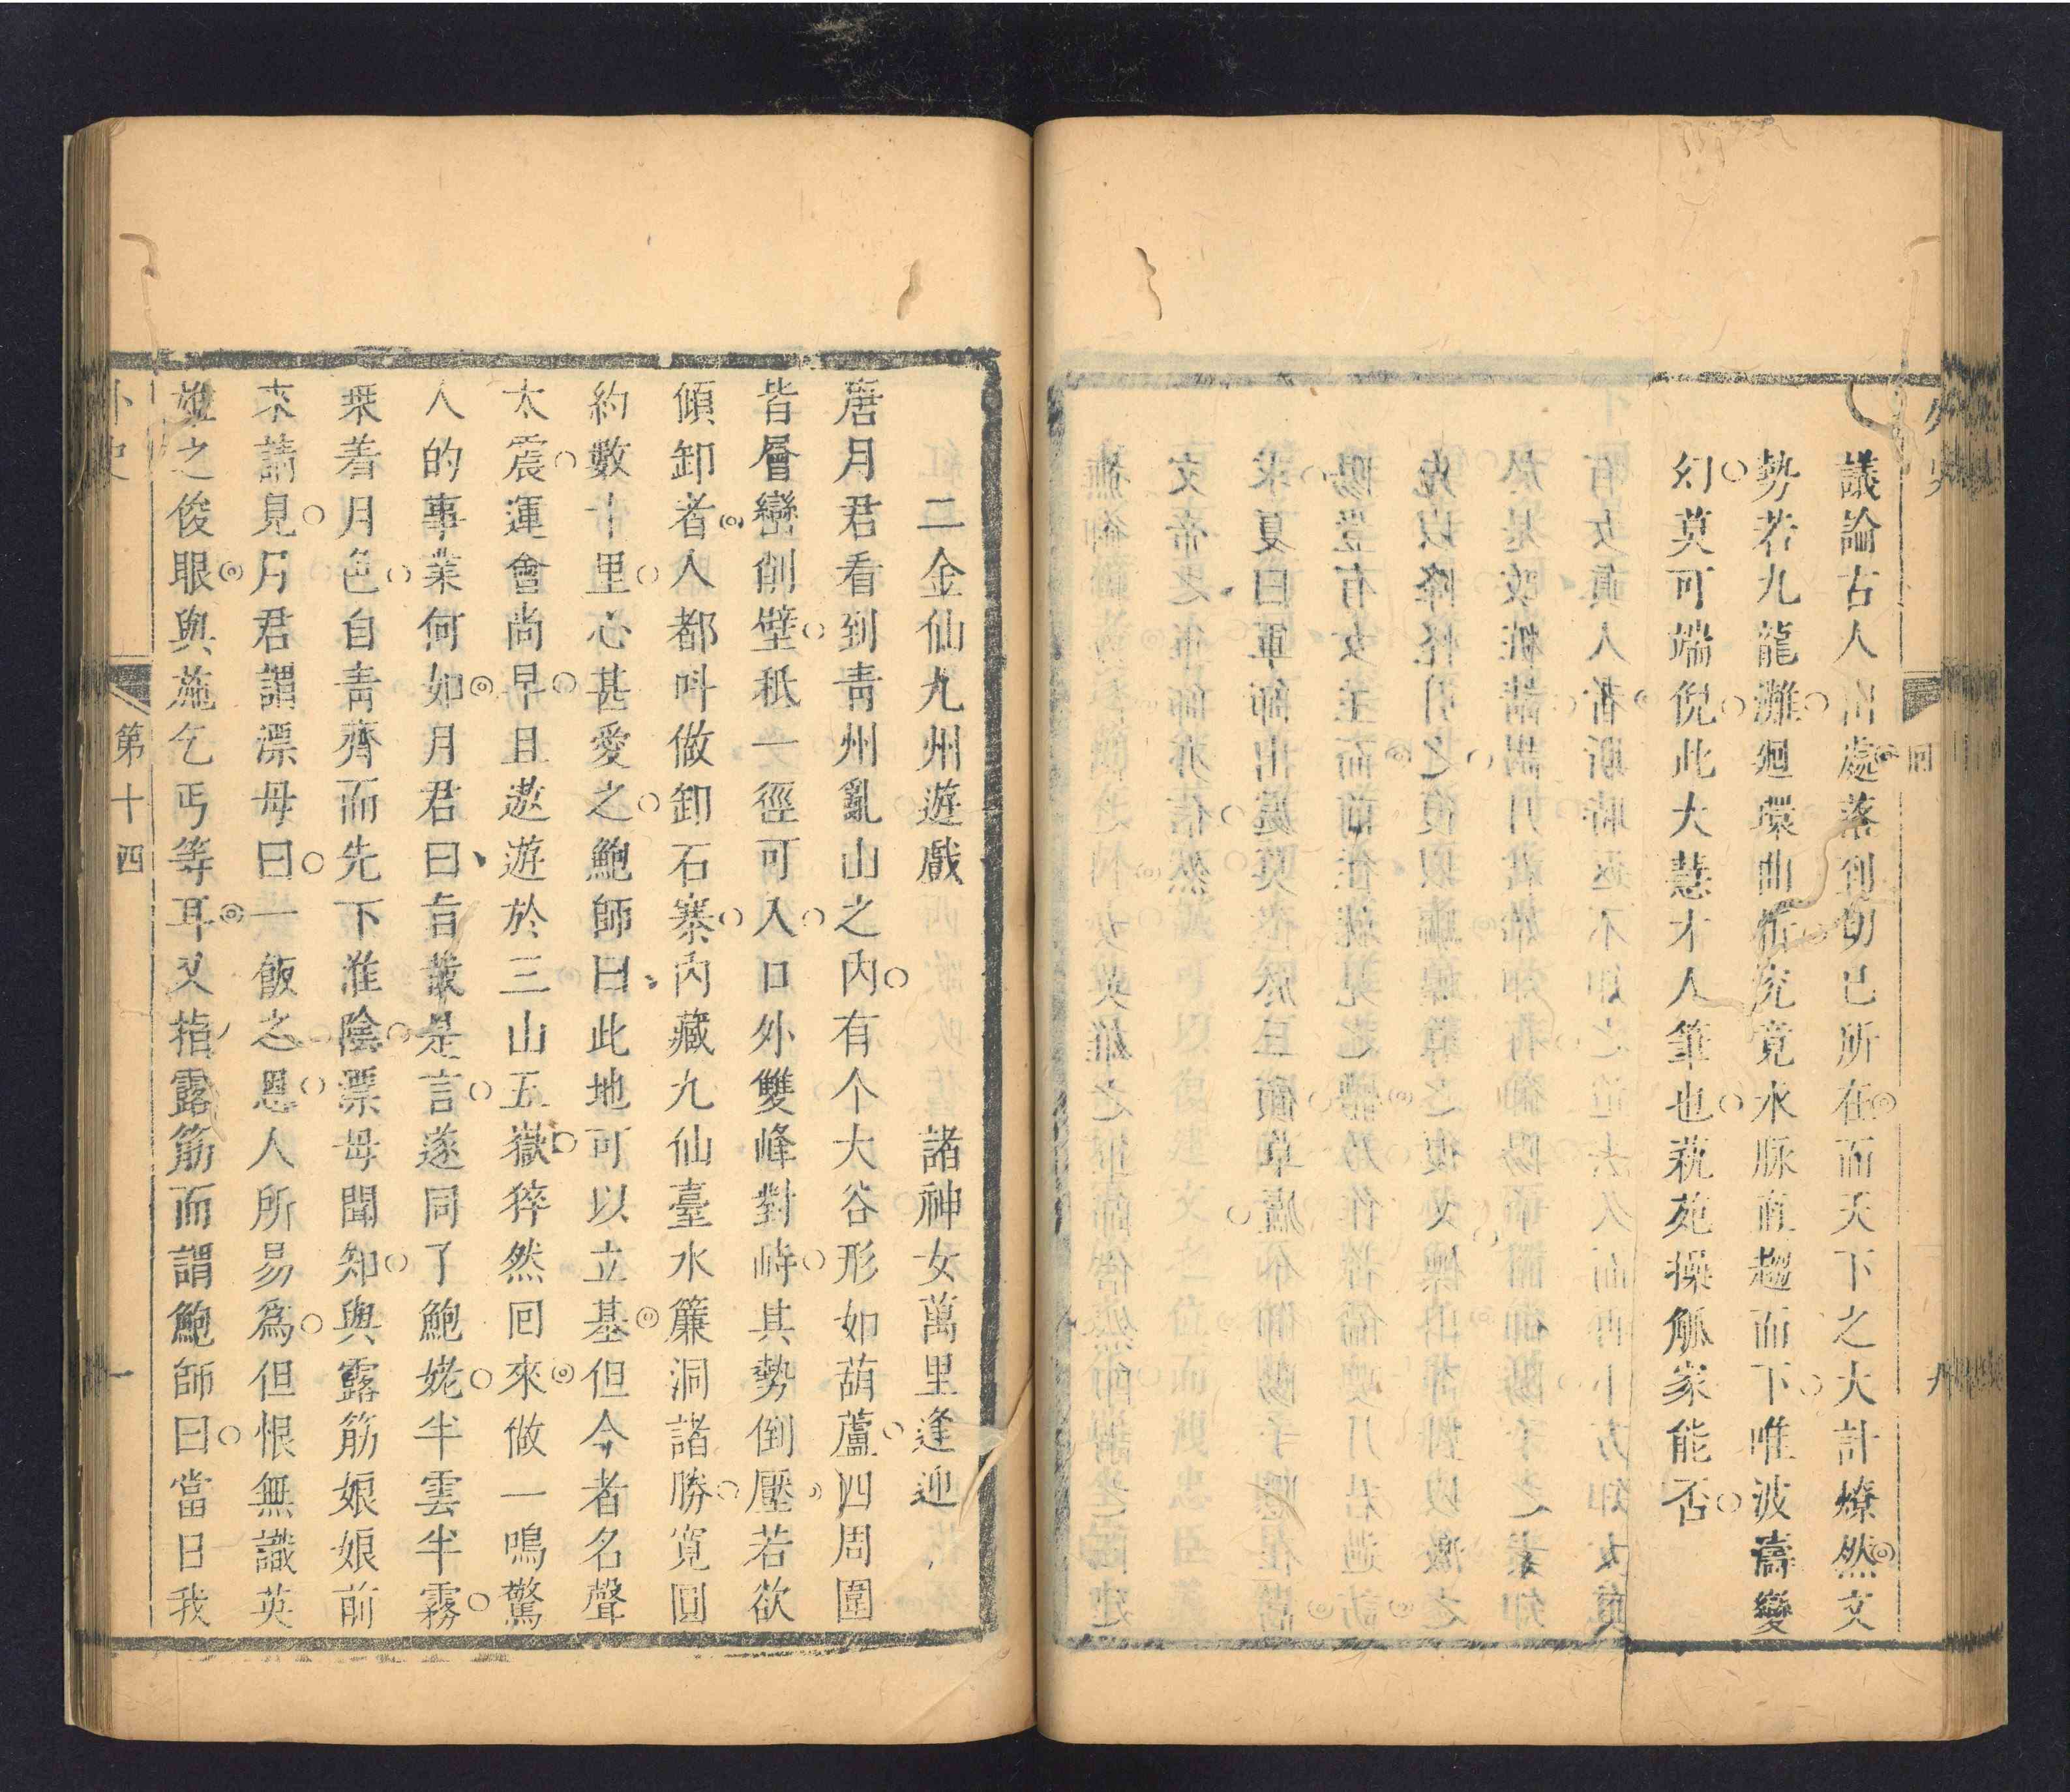 議論古人出處落到切已所在而天下之大計燎然文
勢若九龍灘廻環曲折究竟水脉直趨而下唯波濤變
幻莫可端倪此大慧才人筆也蓺苑操觚家能否
二金仙九州遊戲　諸神女萬里逢迎
唐月君看到青州亂山之內有个大谷形如葫蘆四周圍
皆層巒削壁秖一徑可入口外雙峰對峙其勢倒壓若欲
傾卸者人都呌做卸石寨內藏九仙臺水簾洞諸勝寬圓
約數十里心甚愛之鮑師曰此地可以立基但今者名聲
太震運會尚早且遨遊於三山五嶽猝然回來做一鳴驚
人的事業何如月君曰旨哉是言遂同了鮑姥半雲半霧
乗着月色自青齊而先下淮陰漂母聞知與露筋娘娘前
來請見月君謂漂母曰一飯之恩人所易爲但恨無識英
雄之俊眼與施乞丐等耳又指露筋而謂鮑師曰當日我
外史
第十四
一
外史
回
九